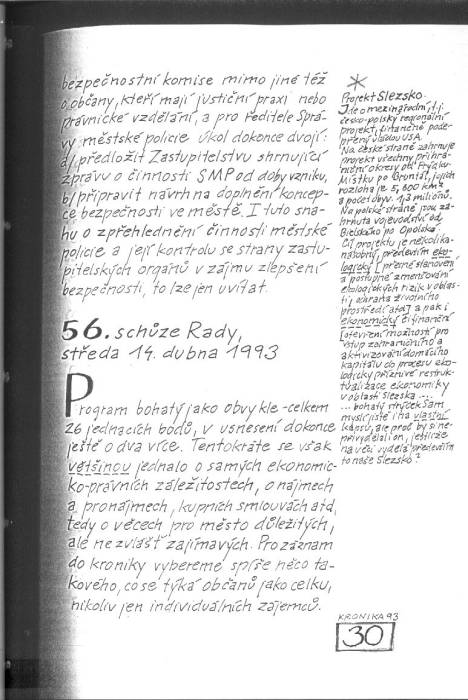 bezpečnostní komise mimo jiné též
o občany, kteří mají justiční praxi nebo
právnické vzdělání, a pro ředitele Sprá-
vy městské policie úkol dokonce dvojí:
a/ předložit Zastupitelstvu shrnující
zprávu o činnosti SMP od doby vzniku,
b/ připravit návrh na doplnění koncep-
ce bezpečnosti ve městě. I tuto sna-
hu o zpřehlednění činnosti městské
policie a její kontrolu se strany zastu-
pitelských orgánů v zájmu zlepšení
bezpečnosti, to lze jen uvítat.
56. schůze Rady,
středa 14. dubna 1993
Program bohatý jako obvykle - celkem
26 jednacích bodů, v usnesení dokonce
ještě o dva více. Tentokráte se však
většinou jednalo o samých ekonomic-
ko-právních záležitostech, o nájmech
a pronájmech, kupních smlouvách atd,
tedy o věcech pro město důležitých,
ale nezvlášť zajímavých. Pro záznam
do kroniky vybereme spíše něco ta-
kového, co se týká občanů jako celku,
nikoliv jen individuálních zájemců.
*
Projekt Slezsko.
Jde o mezinárodní, tj.
česko-polský regionální
projekt, finančně pode-
přený vládou USA.
Na české straně zahrnuje
projekt všechny příhra-
niční okresy od Frýdku-
Místku po Bruntál, jejich
rozloha je 5,600 km2
a počet obyv. 1,3 miliónů.
Na polské straně jsou za-
hrnuta vojevodství od
Bielského po Opolské.
Cíl projektu je několika-
násobný, především eko-
logický [přesné stanovení
a postupné zmenšování
ekologických rizik v oblas-
ti, ochrana životního
prostředí atd] a pak i
ekonomický či finanční
[otevření možností pro
vstup zahraničního a
aktivizování domácího
kapitálu do procesu eko-
logicky příznivé restruk-
turalizace ekonomiky
v oblasti Slezska ...
... bohatý strýček Sam
myslí jistě i na vlastní
kapsu, ale proč by si ne-
přivydělal on, jestliže
na věci vydělá především
to naše Slezsko?
KRONIKA 93
30